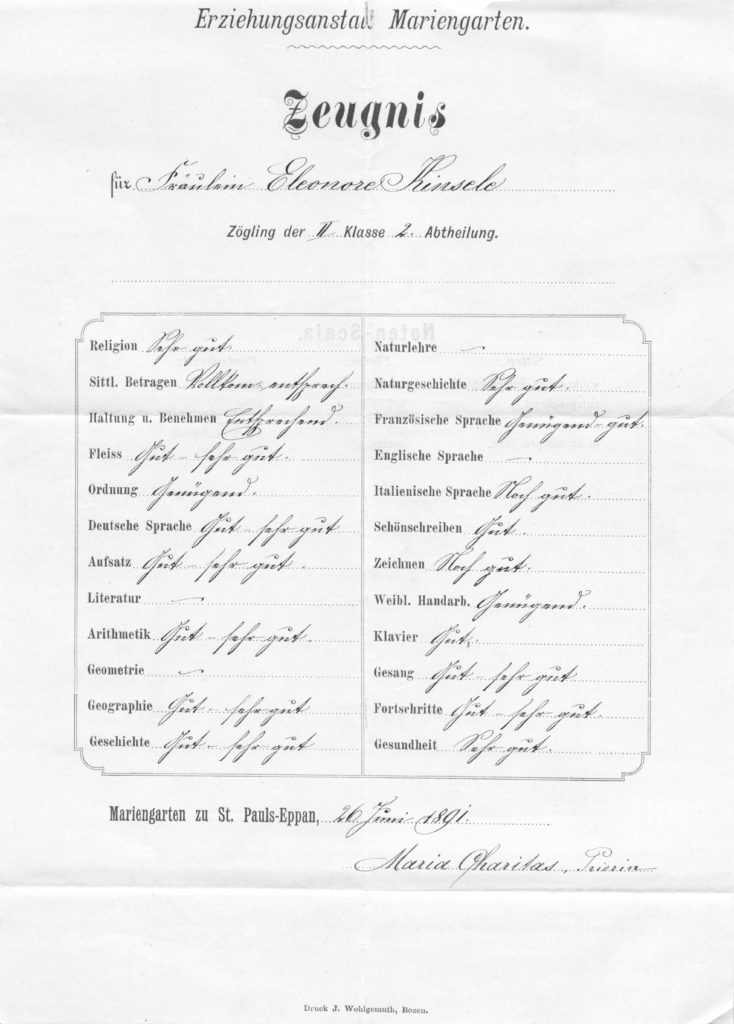 Erziehungsanstalt Mariengarten.
Zeugnis
für Fräulein Eleonore Kinsele
Zögling der II Klasse 2. Abtheilung.
Religion Sehr gut.
Sittl. Betragen Vollkom. entsprech.
Haltung u. Benehmen Entsprechend.
Fleiss Gut - sehr gut.
Ordnung Genügend.
Deutsche Sprache Gut - sehr gut
Aufsatz Gut - sehr gut.
Literatur —
Arithmetik Gut - sehr gut.
Geometrie —
Geographie Gut - sehr gut
Geschichte Gut - sehr gut
Naturlehre —
Naturgeschichte Sehr gut.
Französische Sprache Genügend - gut.
Englische Sprache —
Italienische Sprache Noch gut.
Schönschreiben Gut.
Zeichnen Noch gut.
Weibl. Handarb. Genügend.
Klavier Gut.
Gesang Gut - sehr gut
Fortschritte Gut - sehr gut.
Gesundheit Sehr gut.
Mariengarten zu St. Pauls-Eppan, 26 Juni 1891.
Maria Charitas, Priorin
Druck J. Wohlgemuth, Bozen.